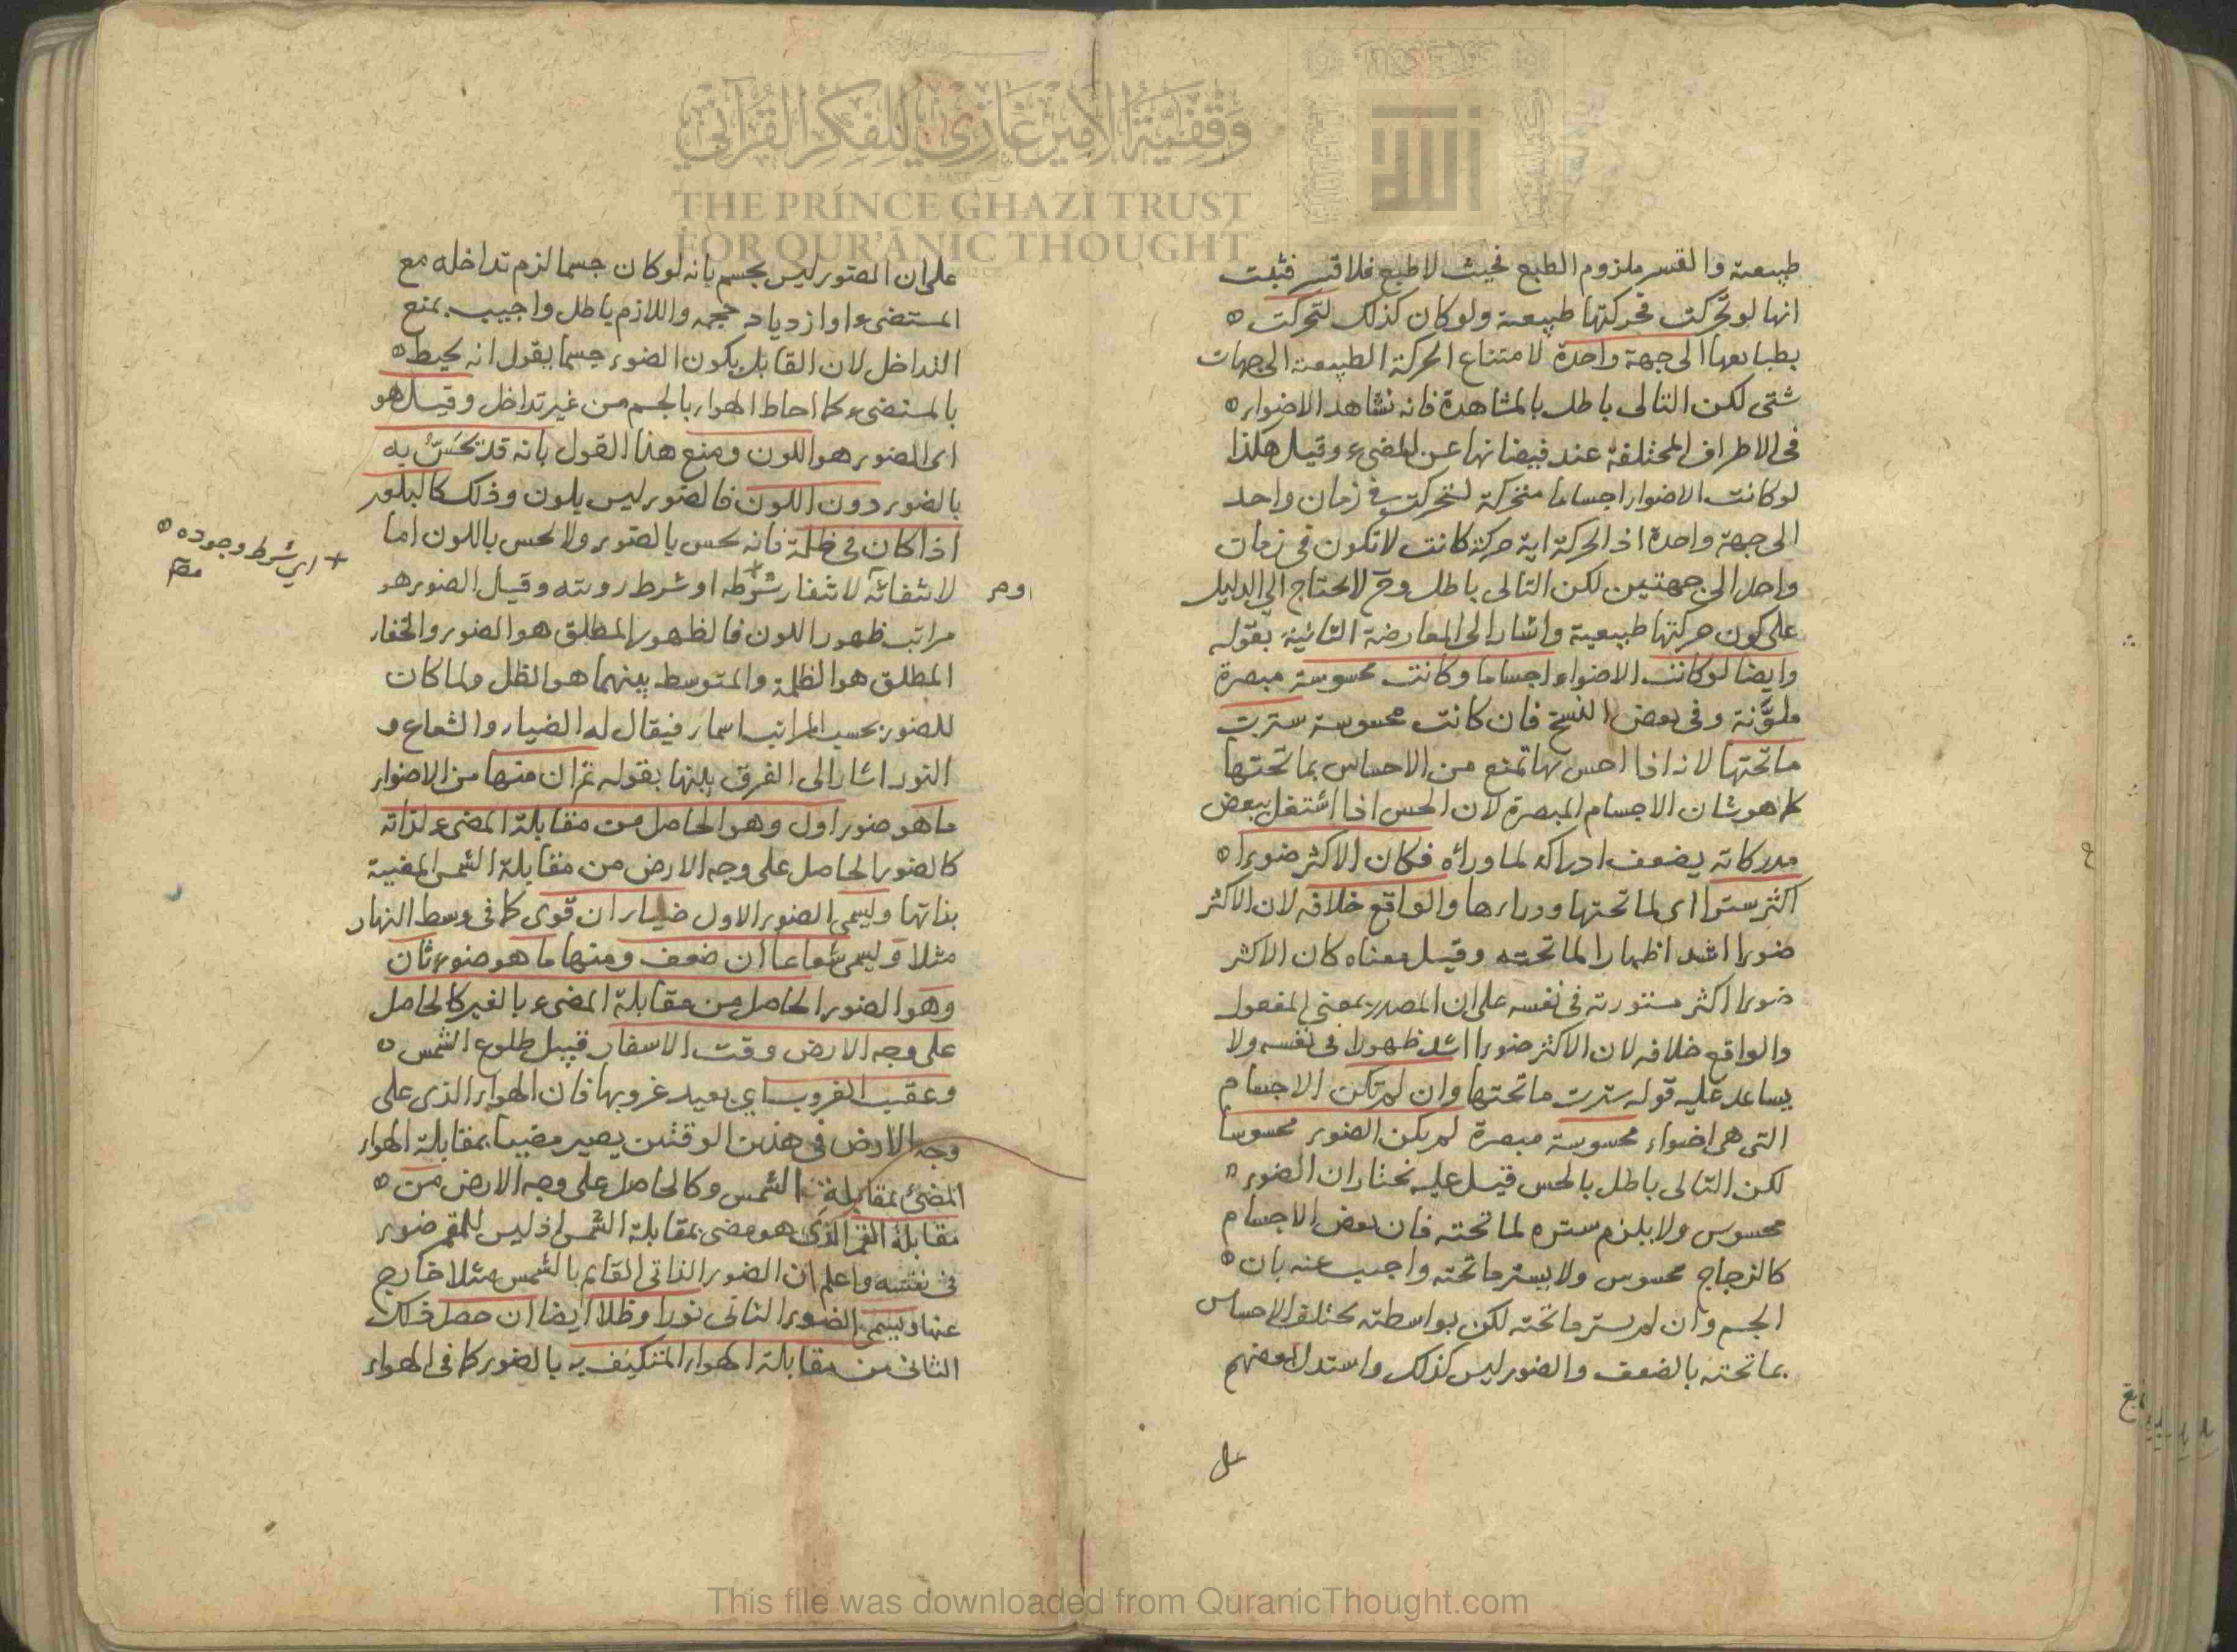 وقفية الأمير غازي للفكر القرآني
THE PRINCE GHAZI TRUST
FOR QUR'ĀNIC THOUGHT
طبيعية والقسر ملزوم الطبع فحيث لا طبع فلا قسر فثبت
انها لو تحركت فحركتها طبيعية ولو كان كذلك لتحركت
بطباعها الى جهة واحدة لامتناع الحركة الطبيعية الى جهات
شتى لكن التالى باطل بالمشاهدة فانه نشاهد الاضواء
فى الاطراف المختلفة عند فيضانها عن المضىء وقيل هكذا
لو كانت الاضواء اجساما متحركة لتحركت فى زمان واحد
الى جهة واحدة اذ الحركة اية حركة كانت لا تكون فى زمان
واحد الى جهتين لكن التالى باطل وح لا يحتاج الى الدليل
على كون حركتها طبيعية واشار الى المعارضة الثانية بقوله
وايضا لو كانت الاضواء اجساما وكانت محسوسة مبصرة
ملوَّنة وفى بعض النسخ فان كانت محسوسة سترت
ما تحتها لانه اذا احس بها تمنع من الاحساس بما تحتها
كما هو شان الاجسام المبصرة لان الحس اذا اشتغل ببعض
مدركاته يضعف ادراكه لما ورائه فكان الاكثر ضوءا
اكثر سترا اى لما تحتها وورائها والواقع خلافه لان الاكثر
ضوءا اشد اظهارا لما تحته وقيل معناه كان الاكثر
ضوءا اكثر مستورته فى نفسه على ان المصدر بمعنى المفعول
والواقع خلافه لان الاكثر ضوءا اشد ظهورا فى نفسه ولا
يساعد عليه قوله سترت ما تحتها وان لم تكن الاجسام
التى هى اضواء محسوسة مبصرة لم يكن الضوء محسوسا
لكن التالى باطل بالحس قيل عليه نختار ان الضوء
محسوس ولا يلزم ستره لما تحته فان بعض الاجسام
كالزجاج محسوس ولا يستر ما تحته واجيب عنه بان
الجسم وان لم يستر ما تحته لكن بواسطته يختلف الاحساس
بما تحته بالضعف والضوء ليس كذلك واستدل بعضهم
على
على ان الضوء ليس بجسم بانه لو كان جسما لزم تداخله مع
المستضىء او ازدياد حجمه واللازم باطل واجيب بمنع
التداخل لان القابل بكون الضوء جسما يقول انه يحيط
بالمستضىء كما احاط الهواء بالجسم من غير تداخل وقيل هو
اى الضوء هو اللون ومنع هذا القول بانه قد تحَسّ به
بالضوء دون اللون فالضوء ليس بلون وذلك كالبلور
اذا كان فى ظلمة فانه يحس بالضوء ولا يحس باللون اما
لانتفائه لانتفاء شرطه او شرط رويته وقيل الضوء هو
+ اى شرط وجوده
مراتب ظهور اللون فالظهور المطلق هو الضوء والخفاء
المطلق هو الظلمة والمتوسط بينهما هو الظل ولما كان
للضوء بحسب المراتب اسماء فيقال له الضياء والشعاع و
النور اشار الى الفرق بينها بقوله ثم ان منها من الاضواء
ما هو ضوء اول وهو الحاصل من مقابلة المضىء لذاته
كالضوء الحاصل على وجه الارض من مقابلة الشمس المضيئة
بذاتها ويسمى الضوء الاول ضياء ان قوى كما فى وسط النهار
مثلا ويسمى شعاعا ان ضعف ومنها ما هو ضوء ثان
وهو الضوء الحاصل من مقابلة المضىء بالغير كالحاصل
على وجه الارض وقت الاسفار قبيل طلوع الشمس
وعقيب الغروب اى بعيد غروبها فان الهواء الذى على
وجه الارض فى هذين الوقتين يصير مضيا بمقابلة الهواء
المضئ بمقابلة الشمس وكالحاصل على وجه الارض من
مقابلة القمر الذى هو مضى بمقابلة الشمس اذ ليس للقمر ضوء
فى نفسه واعلم ان الضوء الذاتى القايم بالشمس مثلا خارج
عنها ويسمى الضوء الثانى نورا وظلا ايضا ان حصل ذلك
الثانى من مقابلة الهواء المتكيف به بالضوء كما فى الهواء
This file was downloaded from QuranicThought.com